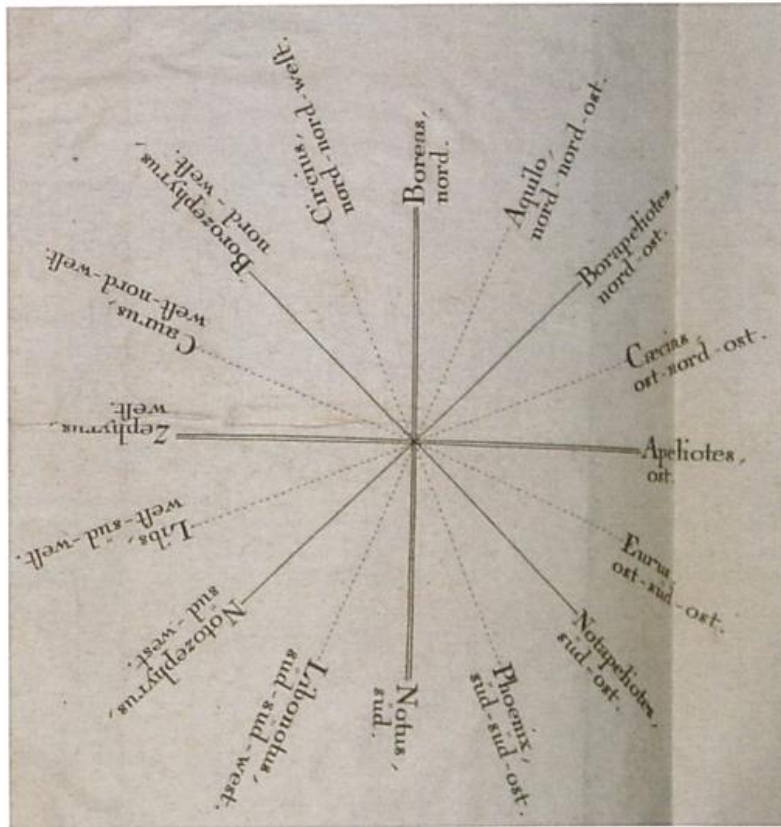 Boreas,
nord.
Aquilo,
nord-nord-ost.
Borapeliotes,
nord-ost.
Cæcias,
ost-nord-ost.
Apeliotes,
ost.
Eurus,
ost-sud-ost.
Notapeliotes,
sùd-ost.
Phoenix,
sùd-sud-ost.
Notus,
sud.
Libonotus,
sud-sud-west.
Notozephyrus,
sud-west.
Libs,
weſt-sud-weſt.
Zephyrus,
weſt.
Caurus,
weſt-nord-weſt.
Borozephyrus,
nord-weſt.
Circius,
nord-nord-weſt.